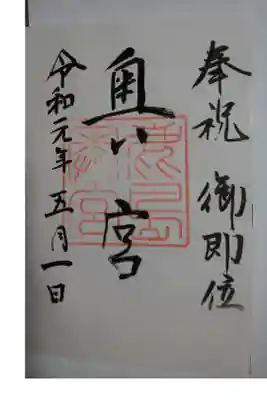 奉祝 御即位
奥宮
令和元年 五月一日